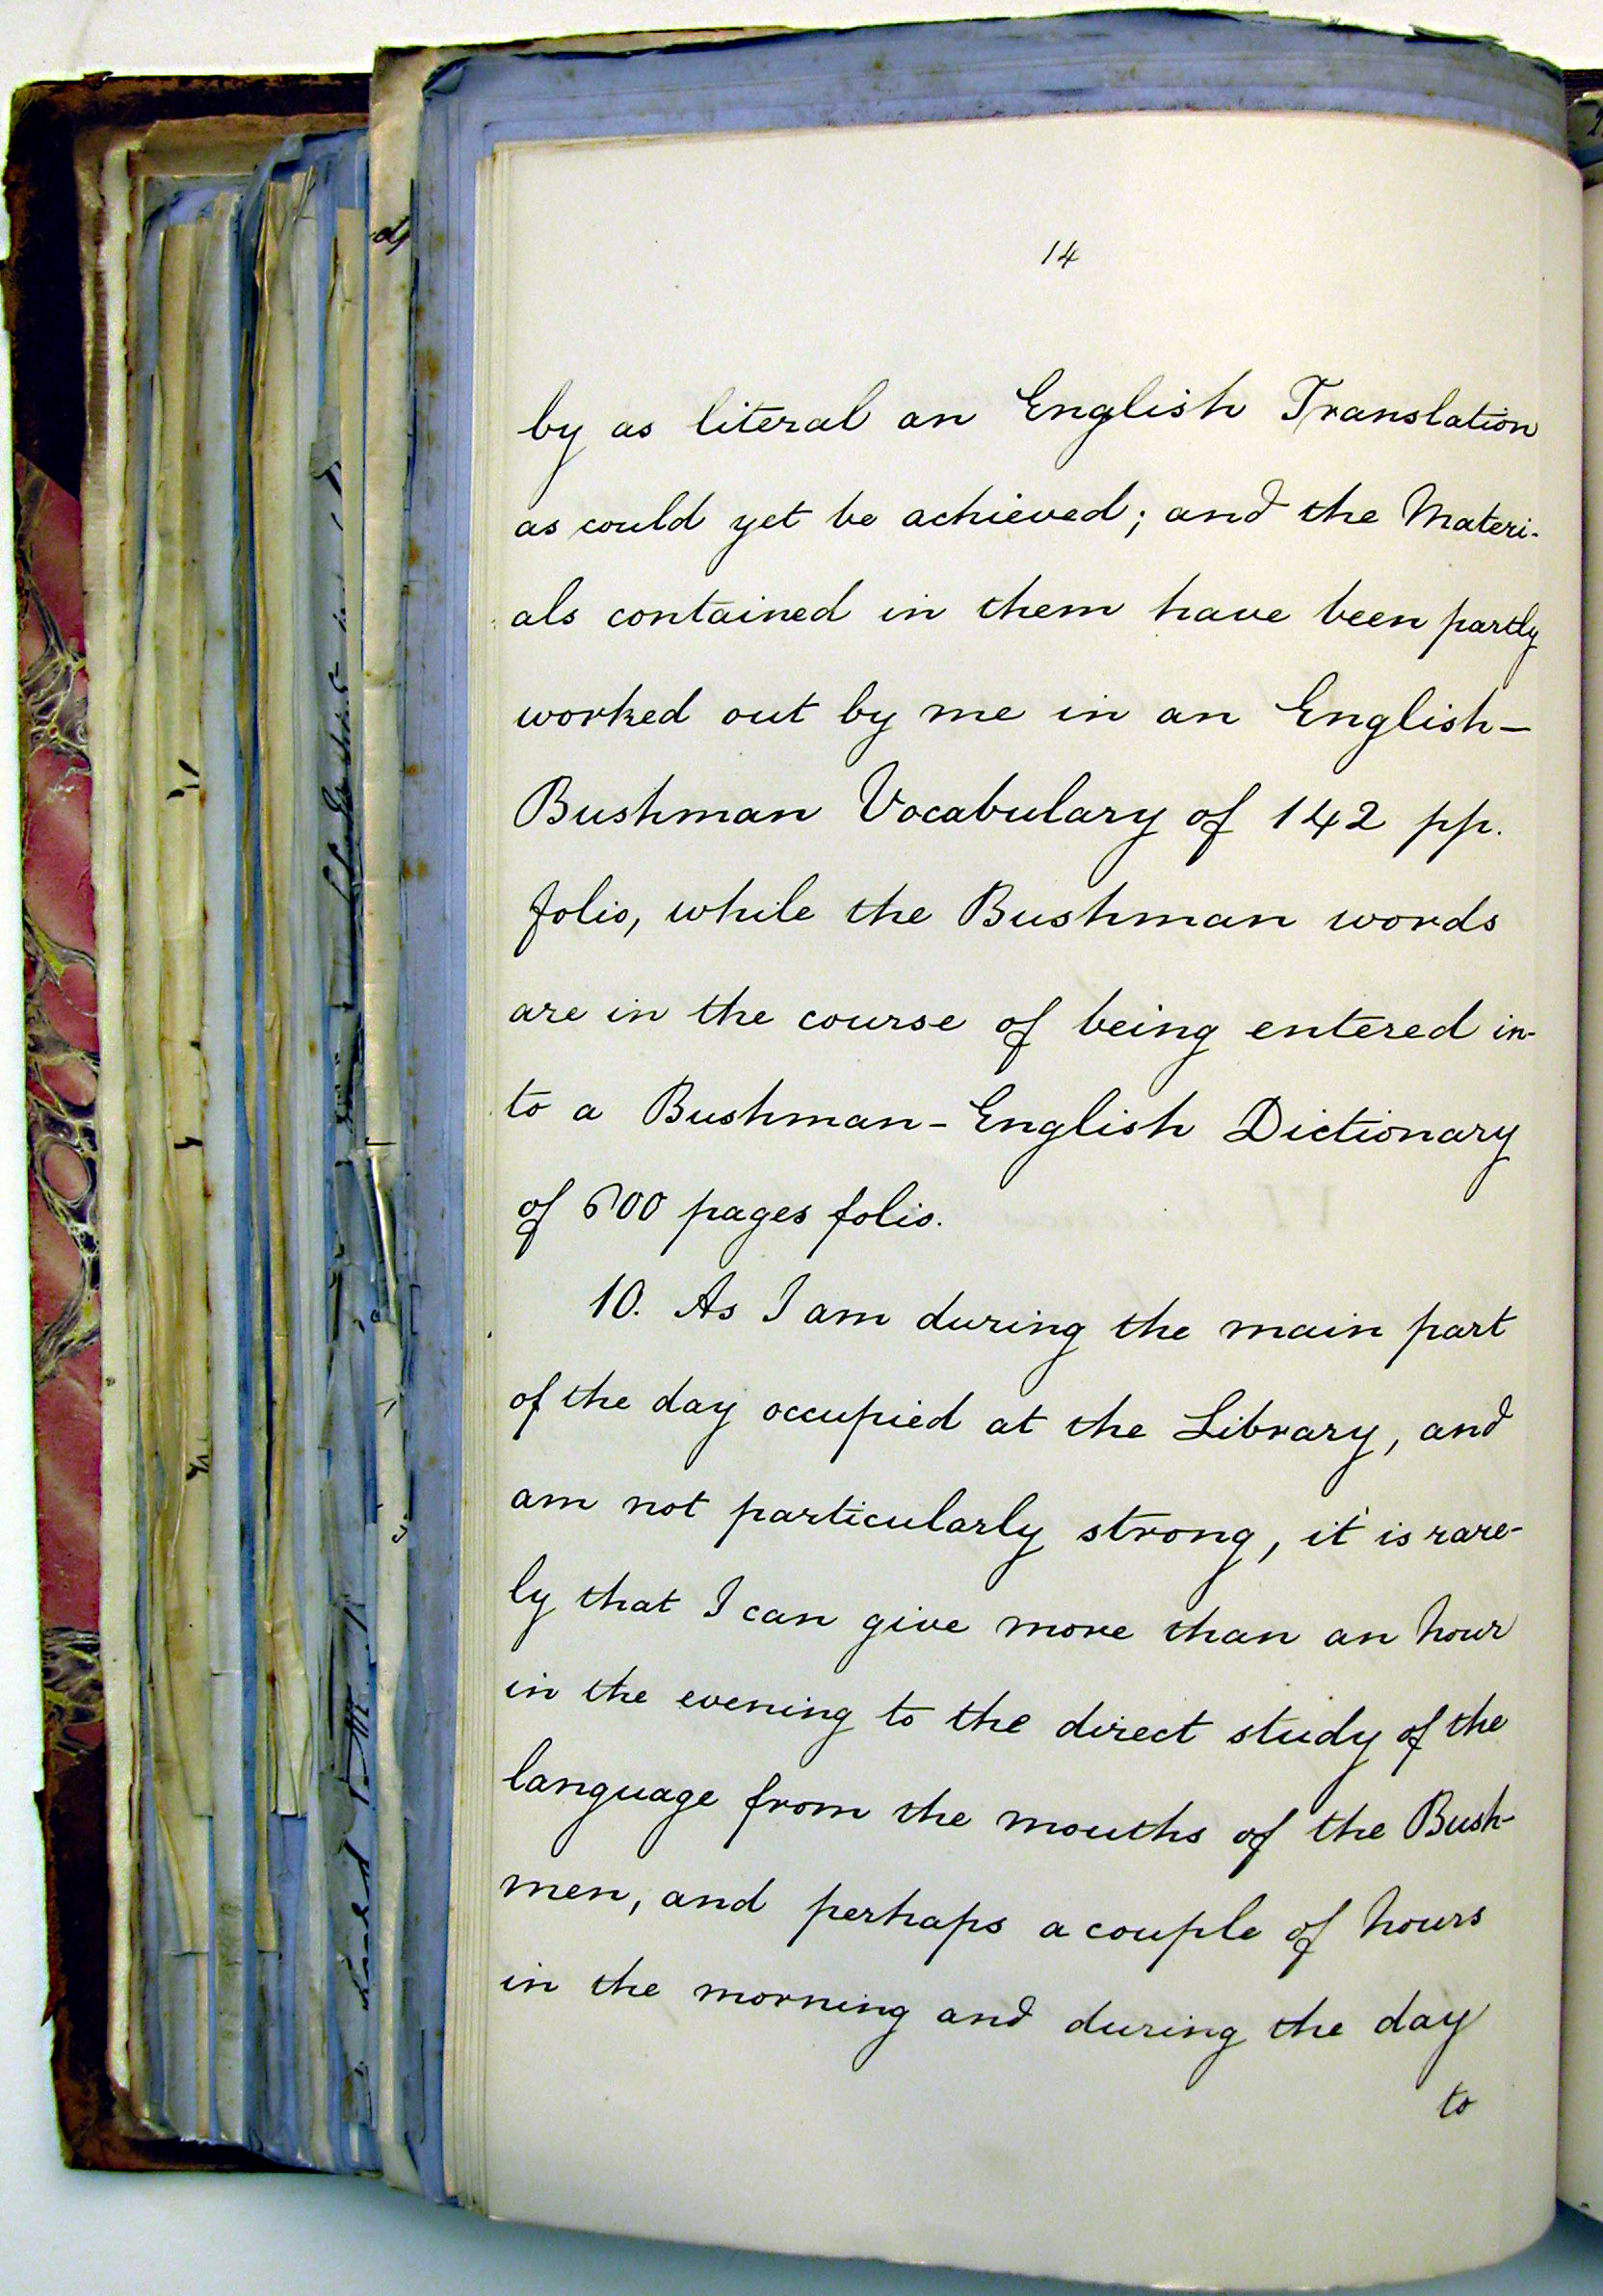 14
by as literal an English Translation
as could yet be achieved; and the Materi-
als contained in them have been partly
worked out by me in an English-
Bushman Vocabulary of 142 pp.
folio, while the Bushman words
are in the course of being entered in-
to a Bushman-English Dictionary
of 600 pages folio.
10. As I am during the main part
of the day occupied at the Library, and
am not particularly strong, it is rare-
ly that I can give more than an hour
in the evening to the direct study of the
language from the mouths of the Bush-
men, and perhaps a couple of hours
in the morning and during the day
to